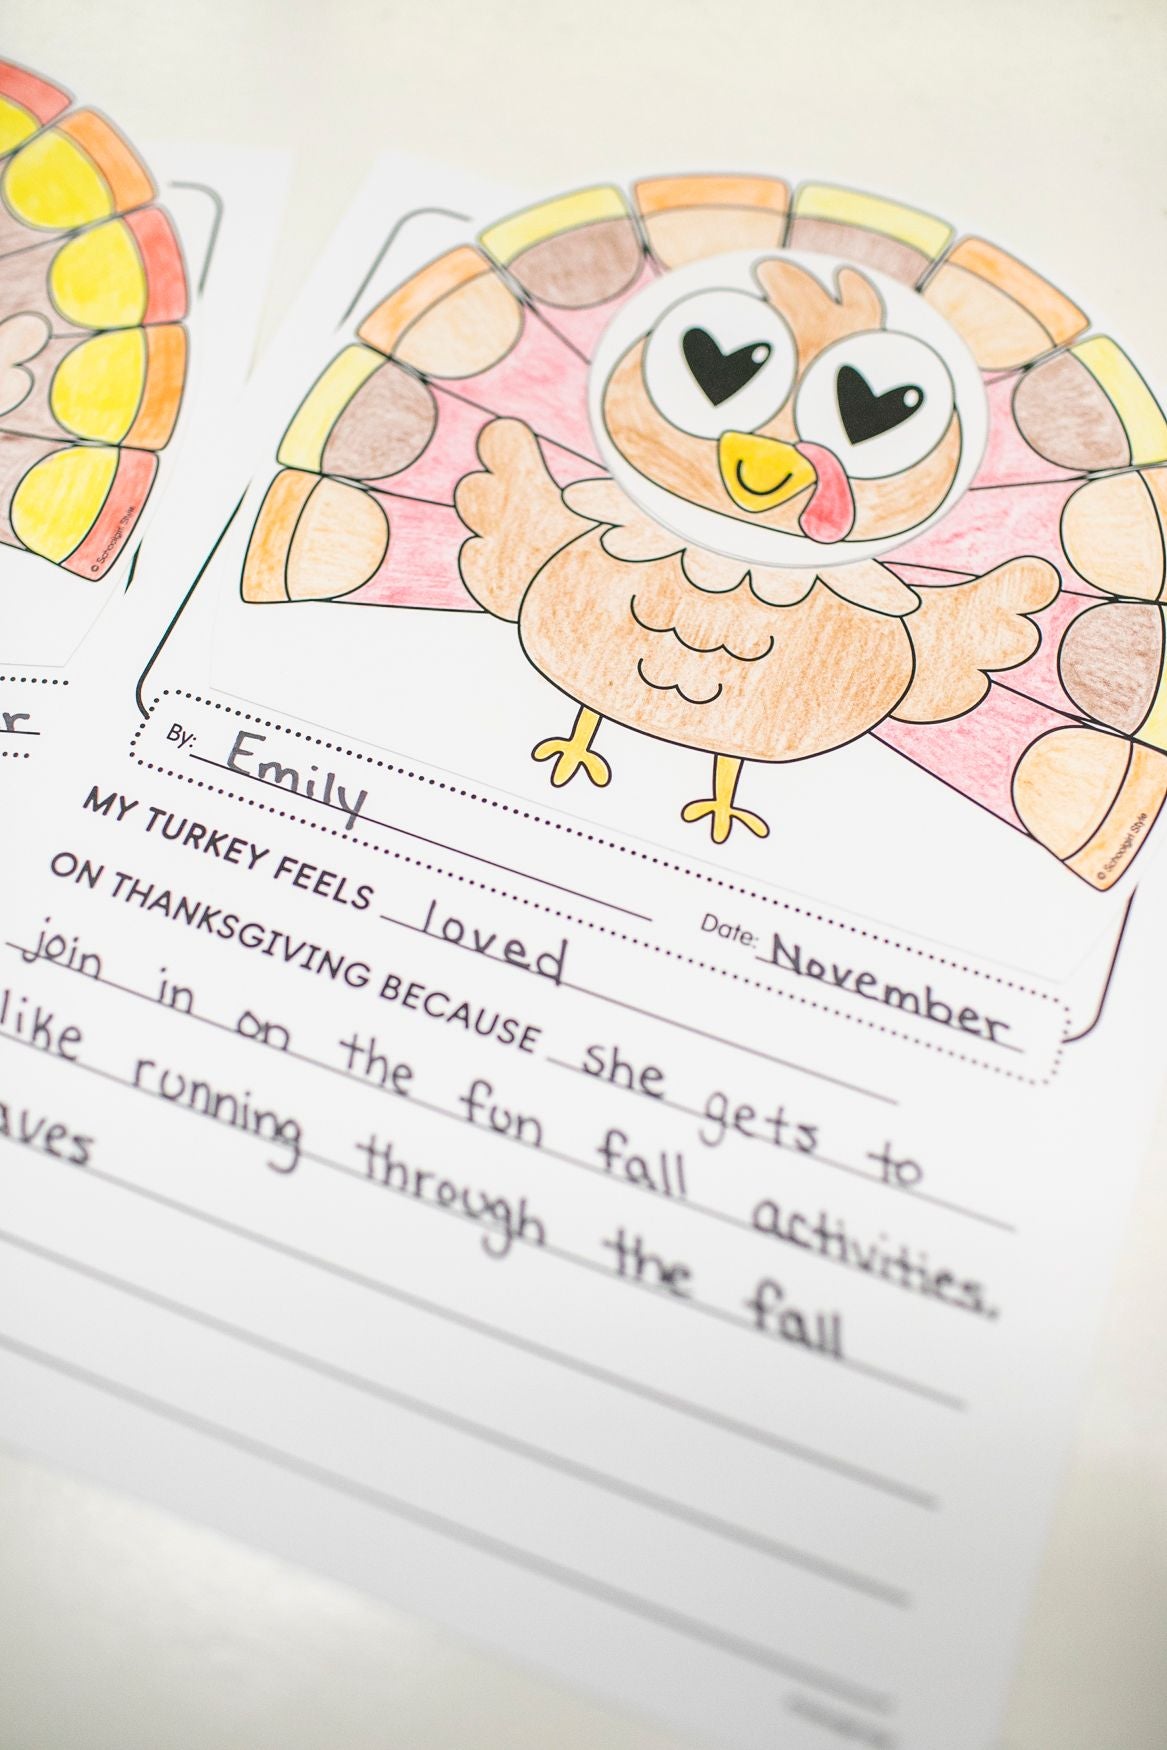 © Schoolgirl Style
© Schoolgirl Style
By: Emily
Date: November
MY TURKEY FEELS loved
ON THANKSGIVING BECAUSE she gets to
join in on the fun fall activities.
like running through the fall